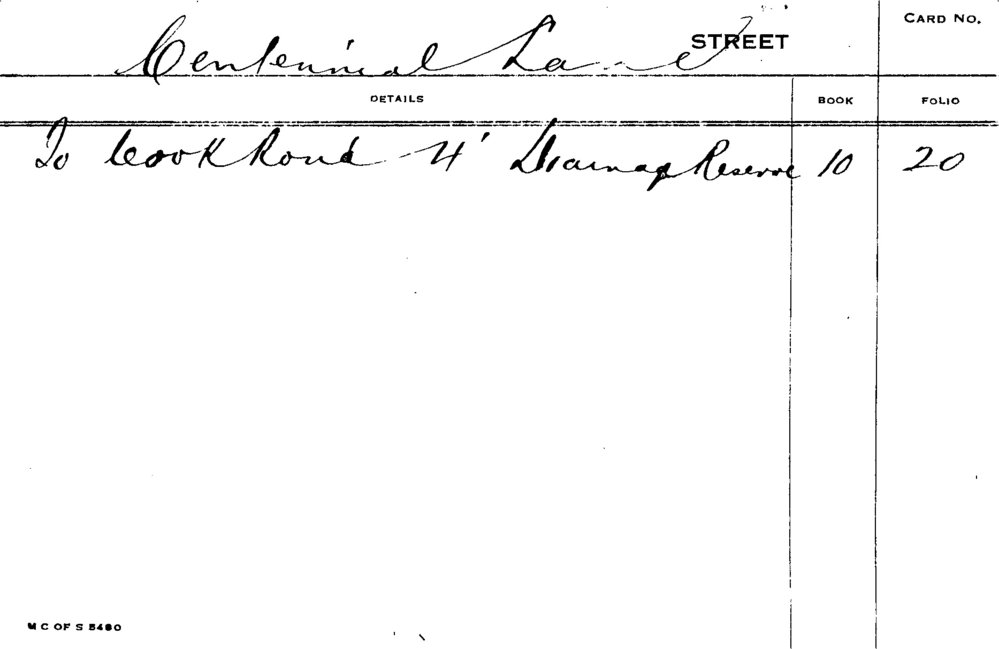 Centennial Lane STREET
CARD NO.
DETAILS BOOK FOLIO
To Cook Road 4' Drainage Reserve 10 20
M C OF S 5480